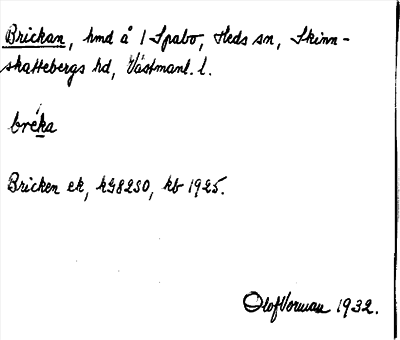 Brickan, hmd å 1 Spabo, Heds sn, Skinn-
skattebergs hd, Västmanl. l.
bréka
Bricken ek, kG8230, kb 1925.
Olof Vorman 1932.